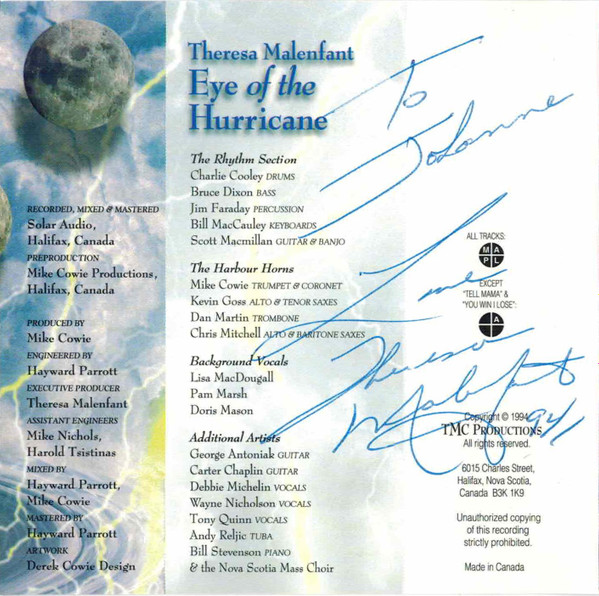 RECORDED, MIXED & MASTERED
Solar Audio,
Halifax, Canada
PREPRODUCTION
Mike Cowie Productions,
Halifax, Canada
PRODUCED BY
Mike Cowie
ENGINEERED BY
Hayward Parrott
EXECUTIVE PRODUCER
Theresa Malenfant
ASSISTANT ENGINEERS
Mike Nichols,
Harold Tsistinas
MIXED BY
Hayward Parrott,
Mike Cowie
MASTERED BY
Hayward Parrott
ARTWORK
Derek Cowie Design
Theresa Malenfant
Eye of the
Hurricane
The Rhythm Section
Charlie Cooley DRUMS
Bruce Dixon BASS
Jim Faraday PERCUSSION
Bill MacCauley KEYBOARDS
Scott Macmillan GUITAR & BANJO
The Harbour Horns
Mike Cowie TRUMPET & CORONET
Kevin Goss ALTO & TENOR SAXES
Dan Martin TROMBONE
Chris Mitchell ALTO & BARITONE SAXES
Background Vocals
Lisa MacDougall
Pam Marsh
Doris Mason
Additional Artists
George Antoniak GUITAR
Carter Chaplin GUITAR
Debbie Michelin VOCALS
Wayne Nicholson VOCALS
Tony Quinn VOCALS
Andy Reljic TUBA
Bill Stevenson PIANO
& the Nova Scotia Mass Choir
To
ALL TRACKS:
M A
P L
EXCEPT
"TELL MAMA" &
"YOU WIN I LOSE":
A
Theresa
Malenfant
94
Copyright © 1994
TMC PRODUCTIONS
All rights reserved.
6015 Charles Street,
Halifax, Nova Scotia,
Canada B3K 1K9
Unauthorized copying
of this recording
strictly prohibited.
Made in Canada